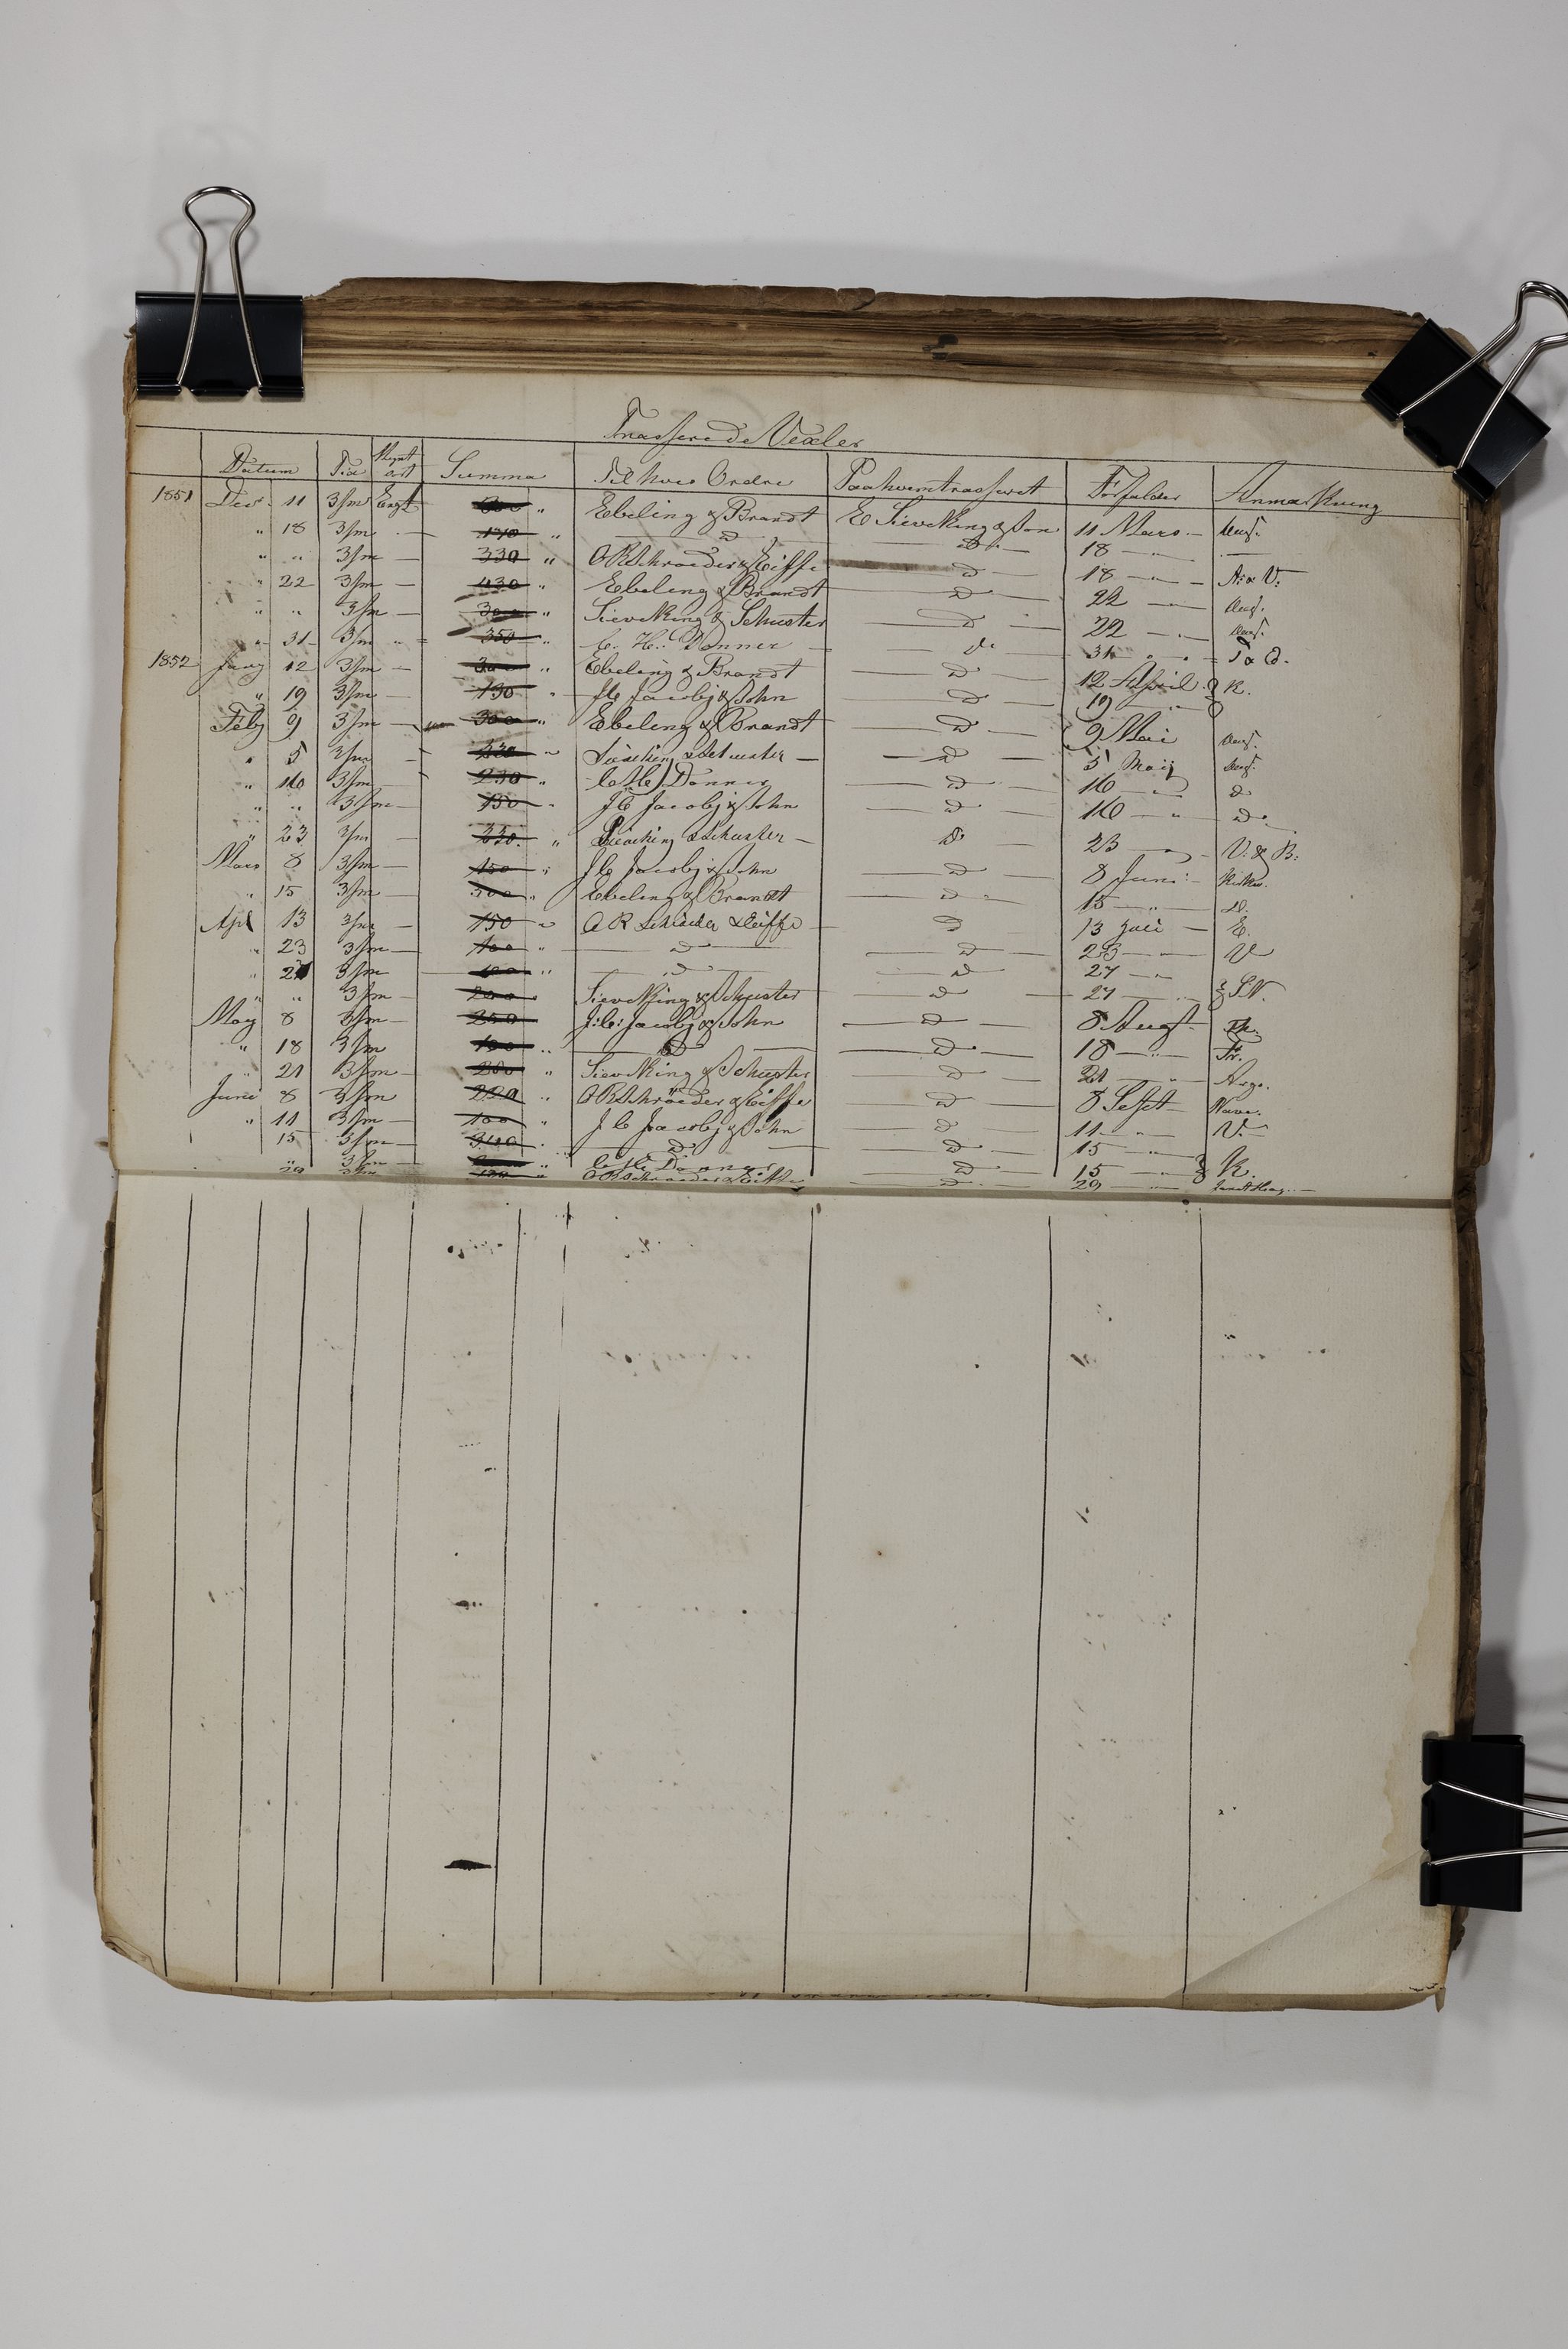 Trasserede Vexler
Datum Tid Mynt art Summa Til hvis Ordre Paa hvem trasseret Forfalder Anmærkning
1851 Dec. 11 3/m Engl. „ Ebeling & Brandt E Sieveking & Son 11 Mars —
„ 18 3/m — 170 „ — d — — d — 18 — „ —
„ „ 3/m — 330 „ O R Schroeder & Eiffe — d — 18 — „ — A: & V:
„ 22 3/m — 430 „ Ebeling & Brandt — d — 22 — „ —
„ „ 3/m — 300 „ Sieveking & Schuster — d — 22 — „ —
„ 31 3/m „ 350 „ C. H. Donner — d° — 31 „ „
1852 Jany 12 3/m — 300 „ Ebeling & Brandt — d — 12 April
„ 19 3/m — 130 „ J C Jacobj & Sohn — d — 19 — „ — R.
Feby 9 3/m — 300 „ Ebeling & Brandt — d — 9 Mai
„ 5 3/m — „ — d — 5 Maij
„ 16 3/m — 230 „ C H Donner — d — 16 — „ — d
„ „ 3/m — 130 „ J C Jacobj & Sohn — d — 16 — „ — d
„ 23 3/m — 330 „ Sieveking & Schuster — d — 23 — „ — V: & B:
Mars 8 3/m — 150 „ J C Jacobj & Sohn — d — 8 Juni
„ 15 3/m — 300 „ Ebeling & Brandt — d — 15 — „ —
Apl 13 3/m — 150 „ O R Schröder & Eiffe — d — 13 Juli — E.
„ 23 3/m — 100 „ — d — — d — 23 — „ — V
„ 27 3/m — „ — d — — d — 27 — „
„ „ 3/m — 200 „ Sieveking & Schuster — d — 27 — „ S.V.
May 8 3/m — 250 „ J: C: Jacobj & Sohn — d — 8 Augt
„ 18 3/m 100 „ — d — — d — 18 — „ —
„ 21 3/m — 200 „ Sieveking & Schuster — d — 21 — „ — Argo.
Juni 8 3/m 200 „ O R Schröeder & Eiffe — d — 8 Sept
„ 11 3/m — 100 „ J C Jacobj & Sohn — d — 11 — „ — V.
15 3/m — „ — d — — d — 15 — „
„ 3/m — „ C H Donner — d — 15 — „ K.
29 3/m „ O R Schroeder & Eiffe — d — 29 — „ —